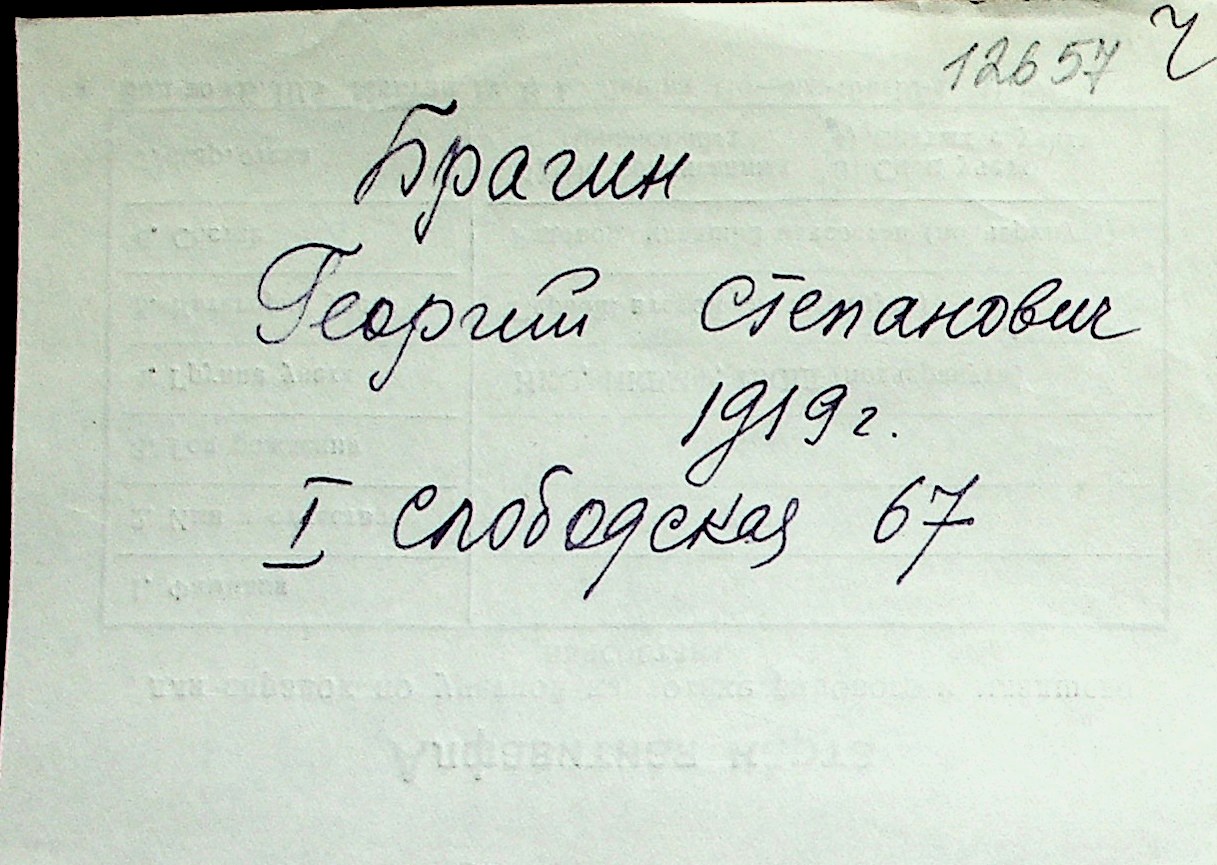 12657 Ч
Брагин
Георгий Степанович
1919 г.
I Слободская 67